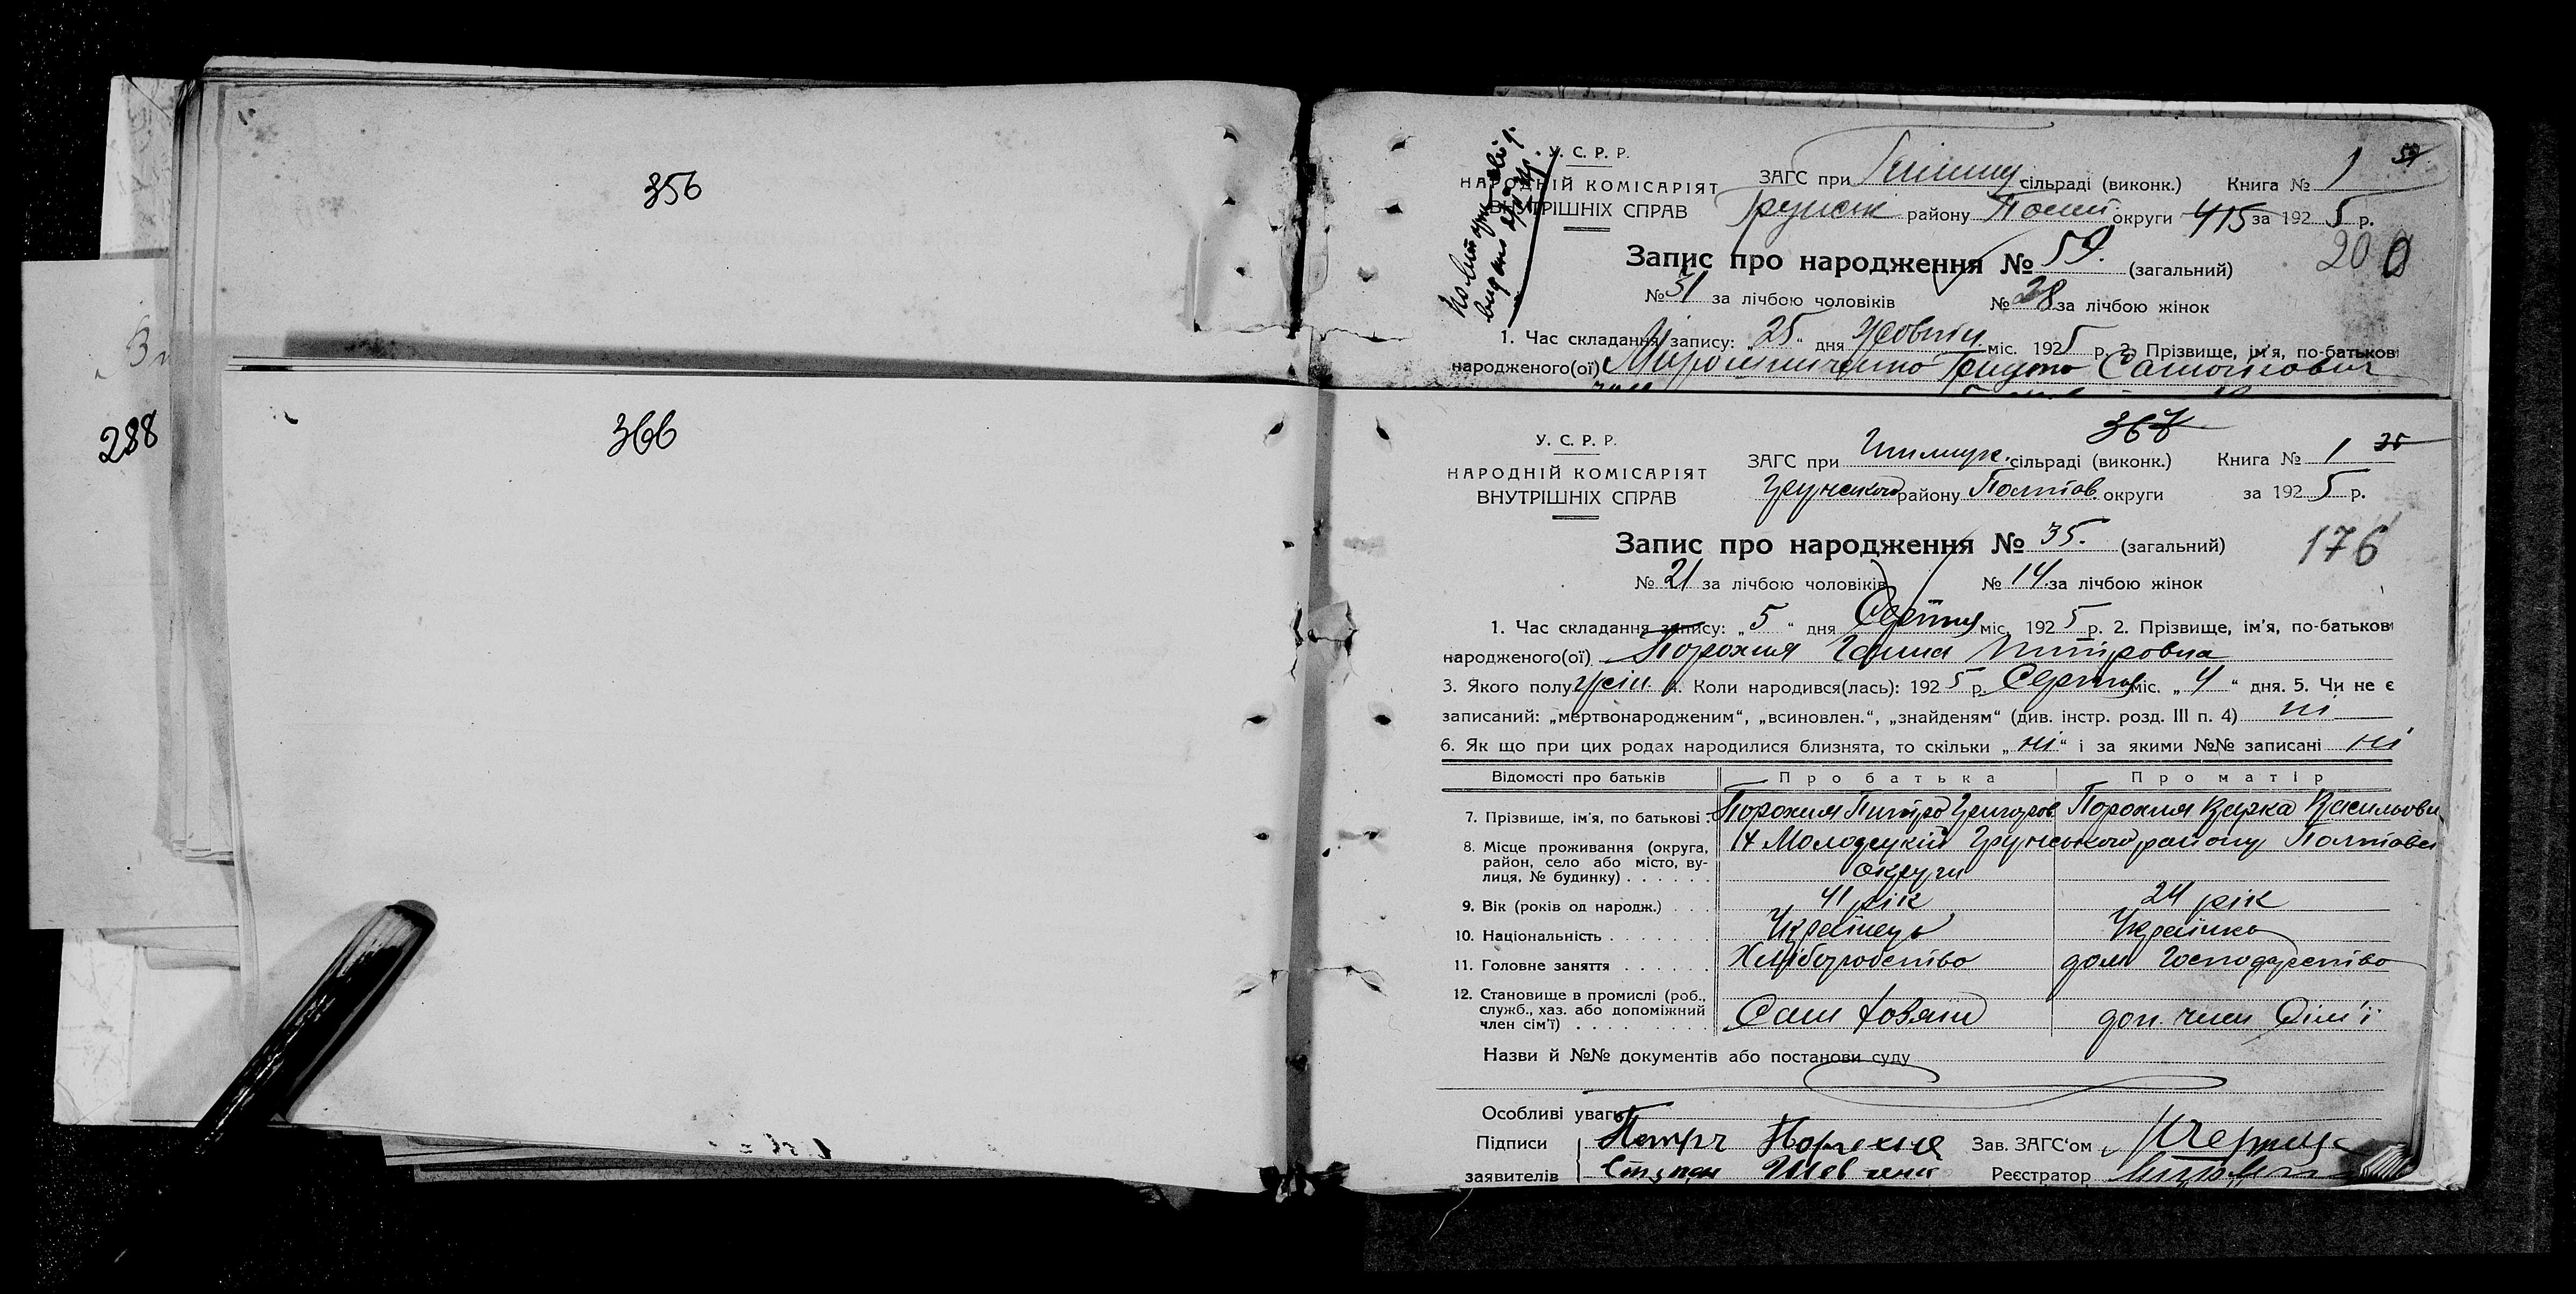 356
288
366
У. С. Р. Р.
НАРОДНІЙ КОМІСАРІЯТ
ВНУТРІШНІХ СПРАВ
ЗАГС при сільраді (виконк.) Книга № 1
району округи 415 за 1925 р.
Запис про народження № 59. (загальний)
200
№ 31 за лічбою чоловіків № 28 за лічбою жінок
1. Час складання запису: „25“ дня Жовтн міс. 1925 р. 2. Прізвище, ім'я, по-батькові
народженого(ої) Мірошниченко
367
У. С. Р. Р.
НАРОДНІЙ КОМІСАРІЯТ
ВНУТРІШНІХ СПРАВ
ЗАГС при сільраді (виконк.) Книга № 1 35
Грунського району Полтав. округи за 1925 р.
Запис про народження № 35. (загальний)
176
№ 21 за лічбою чоловіків № 14 за лічбою жінок
1. Час складання запису: „5“ дня Серпня міс. 1925 р. 2. Прізвище, ім'я, по-батькові
народженого(ої) Порохня Ганна Питровна
3. Якого полу жін. 4. Коли народився(лась): 1925 р. Серпня міс. „4“ дня. 5. Чи не є
записаний: „мертвонародженим“, „всиновлен.“, „знайденям“ (див. інстр. розд. III п. 4) ні
6. Як що при цих родах народилися близнята, то скільки „ні“ і за якими №№ записані ні
Відомості про батьків Про батька Про матір
7. Прізвище, ім'я, по батькові Порохня Питро Григоров. Порохня Варка Васильовн
8. Місце проживання (округа, район, село або місто, вулиця, № будинку) Грунського району Полтавсь
округи
9. Вік (років од народж.) 41 рік 24 рік
10. Національність Українець Українка
11. Головне заняття Хліборобство дом Господарство
12. Становище в промислі (роб., служб., хаз. або допоміжний член сім'ї) Сам хозяін доп. член Сім'ї
Назви й №№ документів або постанови суду
Особливі уваги
Підписи Петро Порохня Зав. ЗАГС'ом
заявителів Степан Реєстратор